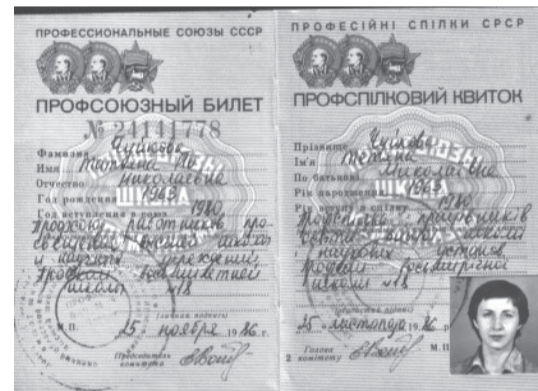 ПРОФЕССИОНАЛЬНЫЕ СОЮЗЫ СССР
ПРОФСОЮЗНЫЙ БИЛЕТ
№ 24141778
Фамилия
Имя Татьяна
Отчество Николаевна
Год рождения 1963
Год вступления в союз 1980
Профсоюз работников про-
свещения, высшей школы
и научных учреждений,
Профком восьмилетней
школы №18
(личная подпись)
М.П. 25 ноября 1986 г.
Председатель
комитета
ПРОФЕСІЙНІ СПІЛКИ СРСР
ПРОФСПІЛКОВИЙ КВИТОК
Прізвище
Ім'я Тетяна
По батькові Миколаївна
Рік народження 1963
Рік вступу в спілку 1980
Профспілка працівників
освіти, вищої школи
і наукових установ,
Профком восьмирічної
школи №18
(особистий підпис)
25 листопада 1986 р.
Голова
комітету
М.П.
2